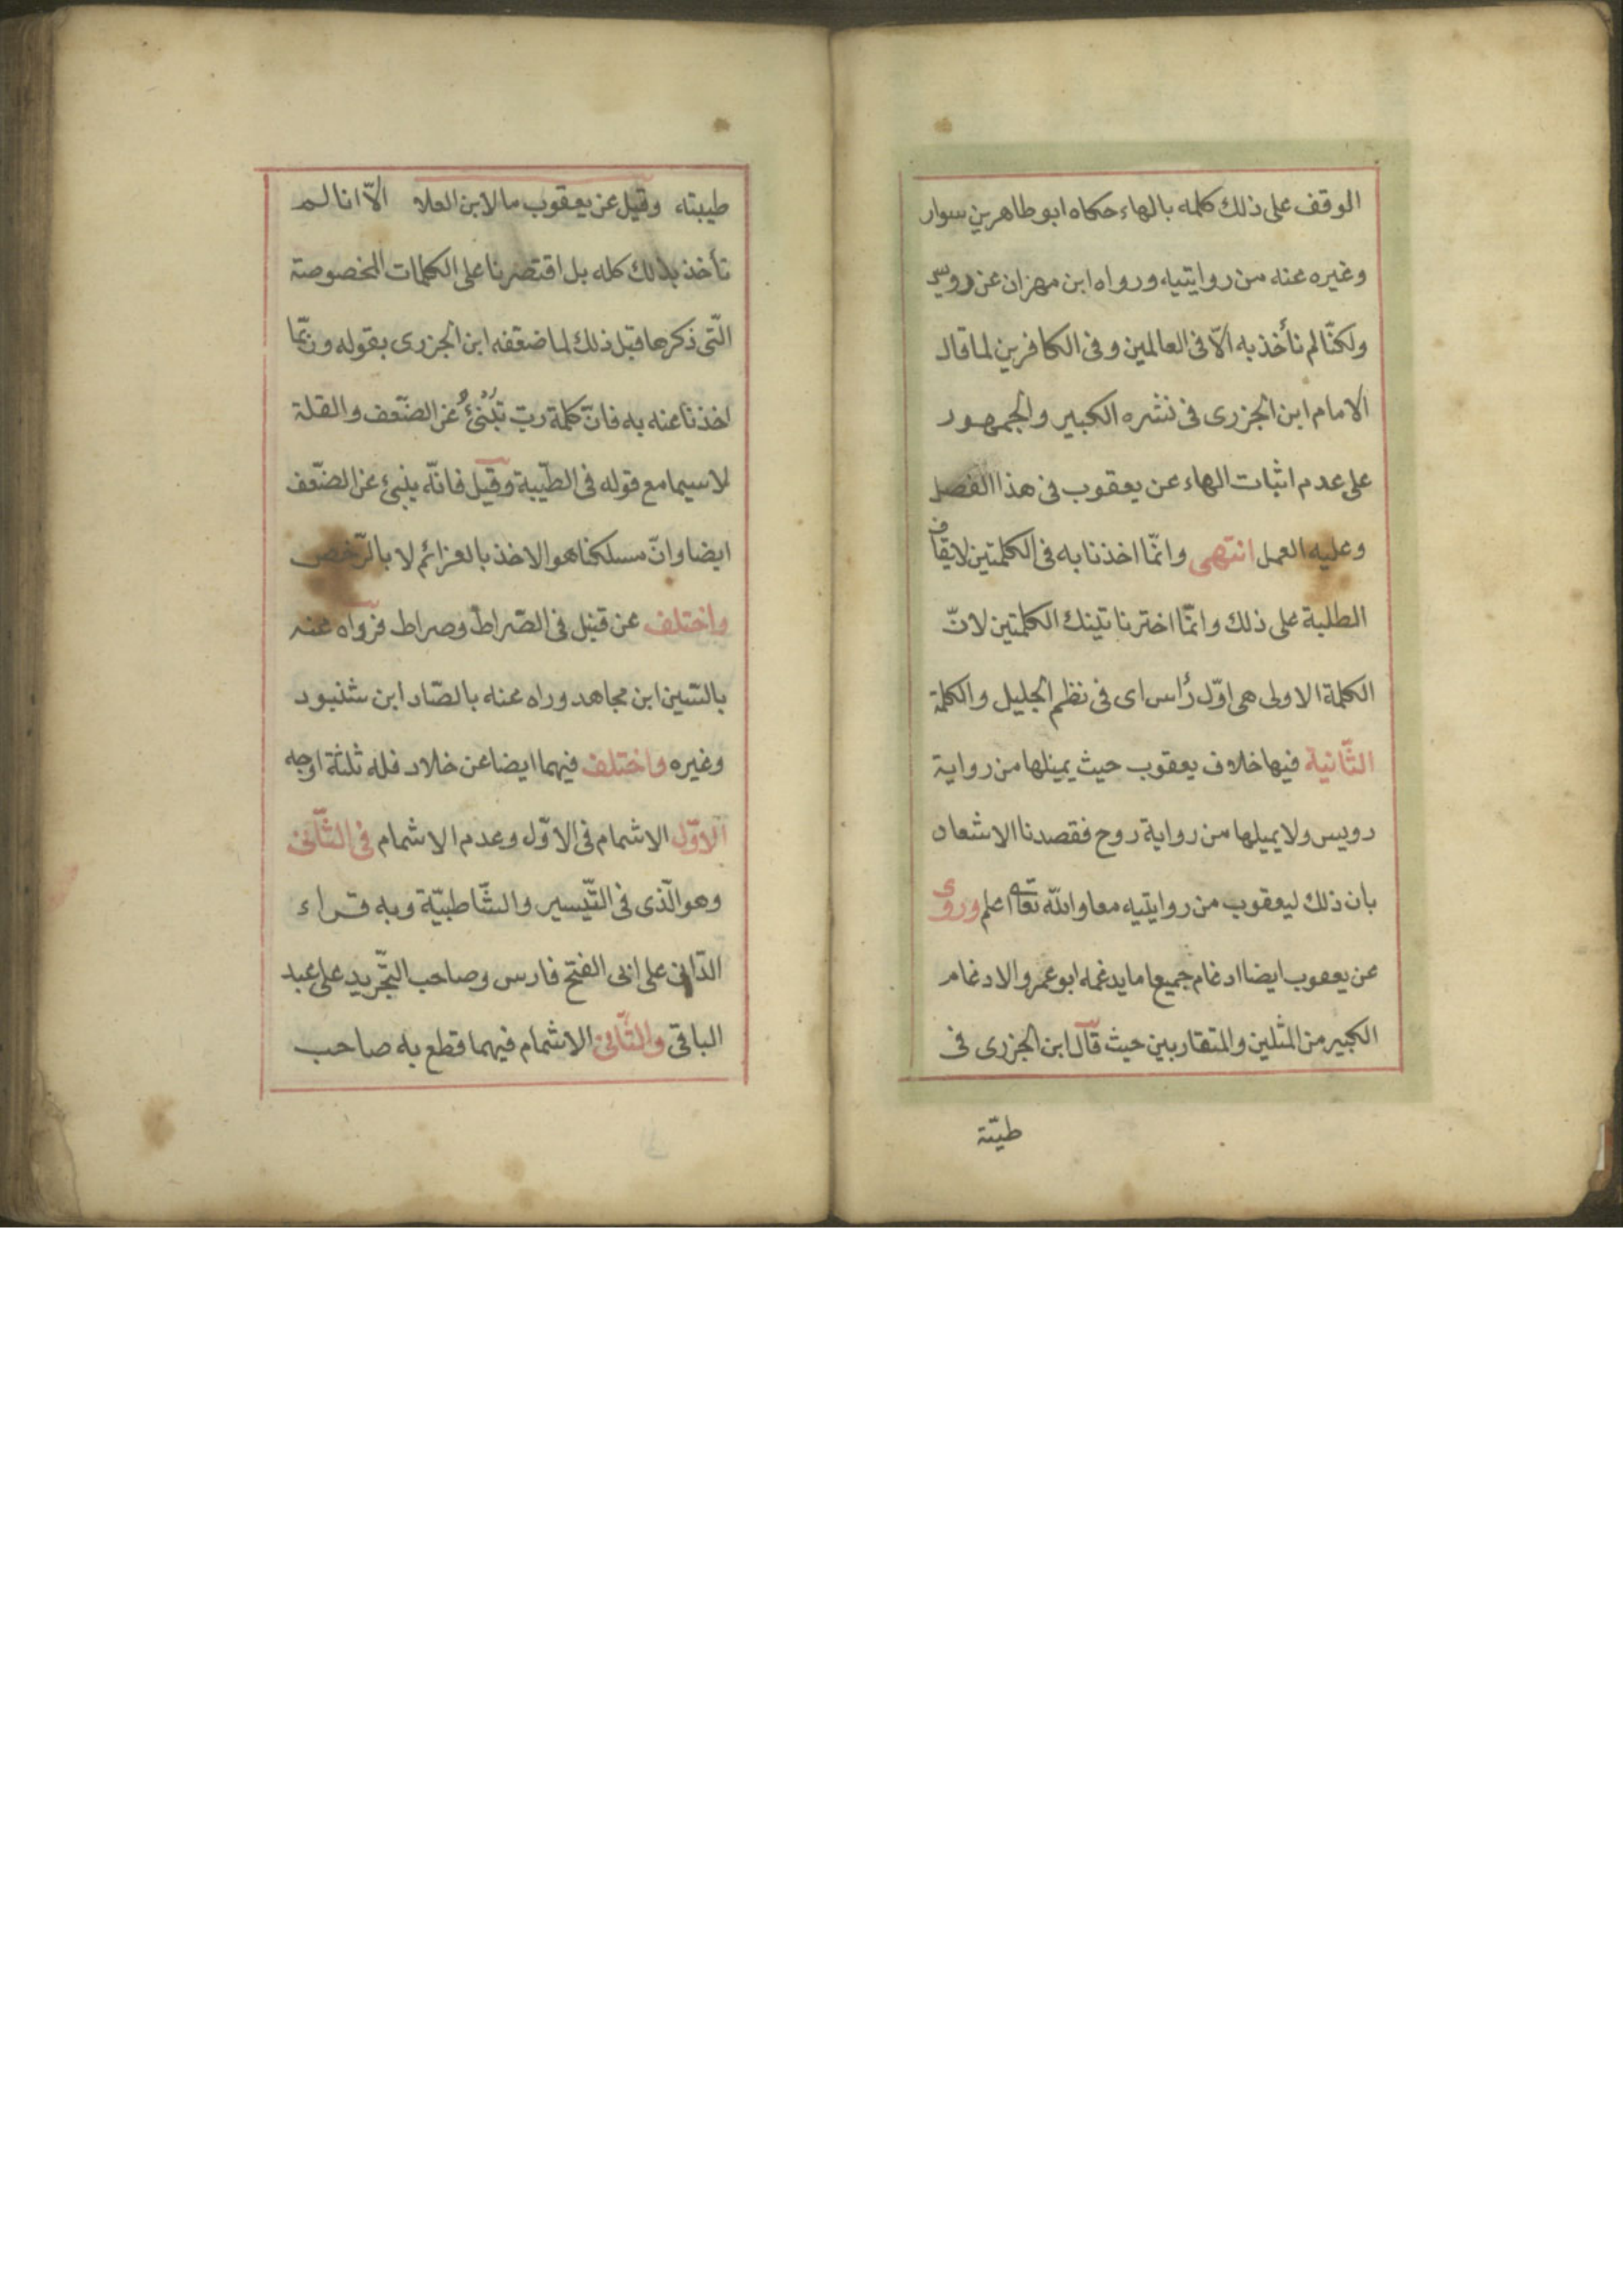 الوقف على ذلك كلمه بالهاء حكاه ابو طاهر بن سوار
وغيره عنه من روايتيه ورواه ابن مهران عن رويس
ولكنّا لم نأخذ به الّا فى العالمين وفى الكافرين لما قال
الامام ابن الجزرى فى نشره الكبير والجمهور
على عدم اثبات الهاء عن يعقوب فى هذا الفصل
وعليه العمل انتهى وانّما اخذنا به فى الكلمتين لايقاف
الطلبة على ذلك وانّما اخترنا تينك الكلمتين لانّ
الكلمة الاولى هى اوّل رأس اى فى نظم الجليل والكلمة
الثّانية فيها خلاف يعقوب حيث يميلها من رواية
رويس ولا يميلها من رواية روح فقصدنا الاشعار
بان ذلك ليعقوب من روايتيه معا والله تعالى اعلم وروى
عن يعقوب ايضا ادغام جميع ما يدغمه ابو عمرو الادغام
الكبير من المثلين والمتقاربين حيث قال ابن الجزرى فى
طيّبة
طيبته وقيل عن يعقوب ما لابن العلا الّا انا لم
نأخذ بذلك كله بل اقتصرنا على الكلمات المخصوصة
الّتى ذكرها قبل ذلك لما ضعّفه ابن الجزرى بقوله وربّما
اخذنا عنه به فانّ كلمة ربّ تنبئ عن الضّعف والقلة
لا سيما مع قوله فى الطّيبة وقيل فانّه ينبئ عن الضّعف
ايضا وانّ مسلكنا هو الاخذ بالعزائم لا بالرّخص
واختلف عن قنبل فى الصّراط وصراط فرواه عنه
بالسّين ابن مجاهد وراه عنه بالصّاد ابن شنبود
وغيره واختلف فيهما ايضا عن خلاد فله ثلثة اوجه
الاوّل الاشمام فى الاوّل وعدم الاشمام فى الثّانى
وهو الّذى فى التّيسير والشّاطبيّة وبه قراء
الدّانى على ابى الفتح فارس وصاحب التّجريد على عبد
الباقى والثّانى الاشمام فيهما قطع به صاحب